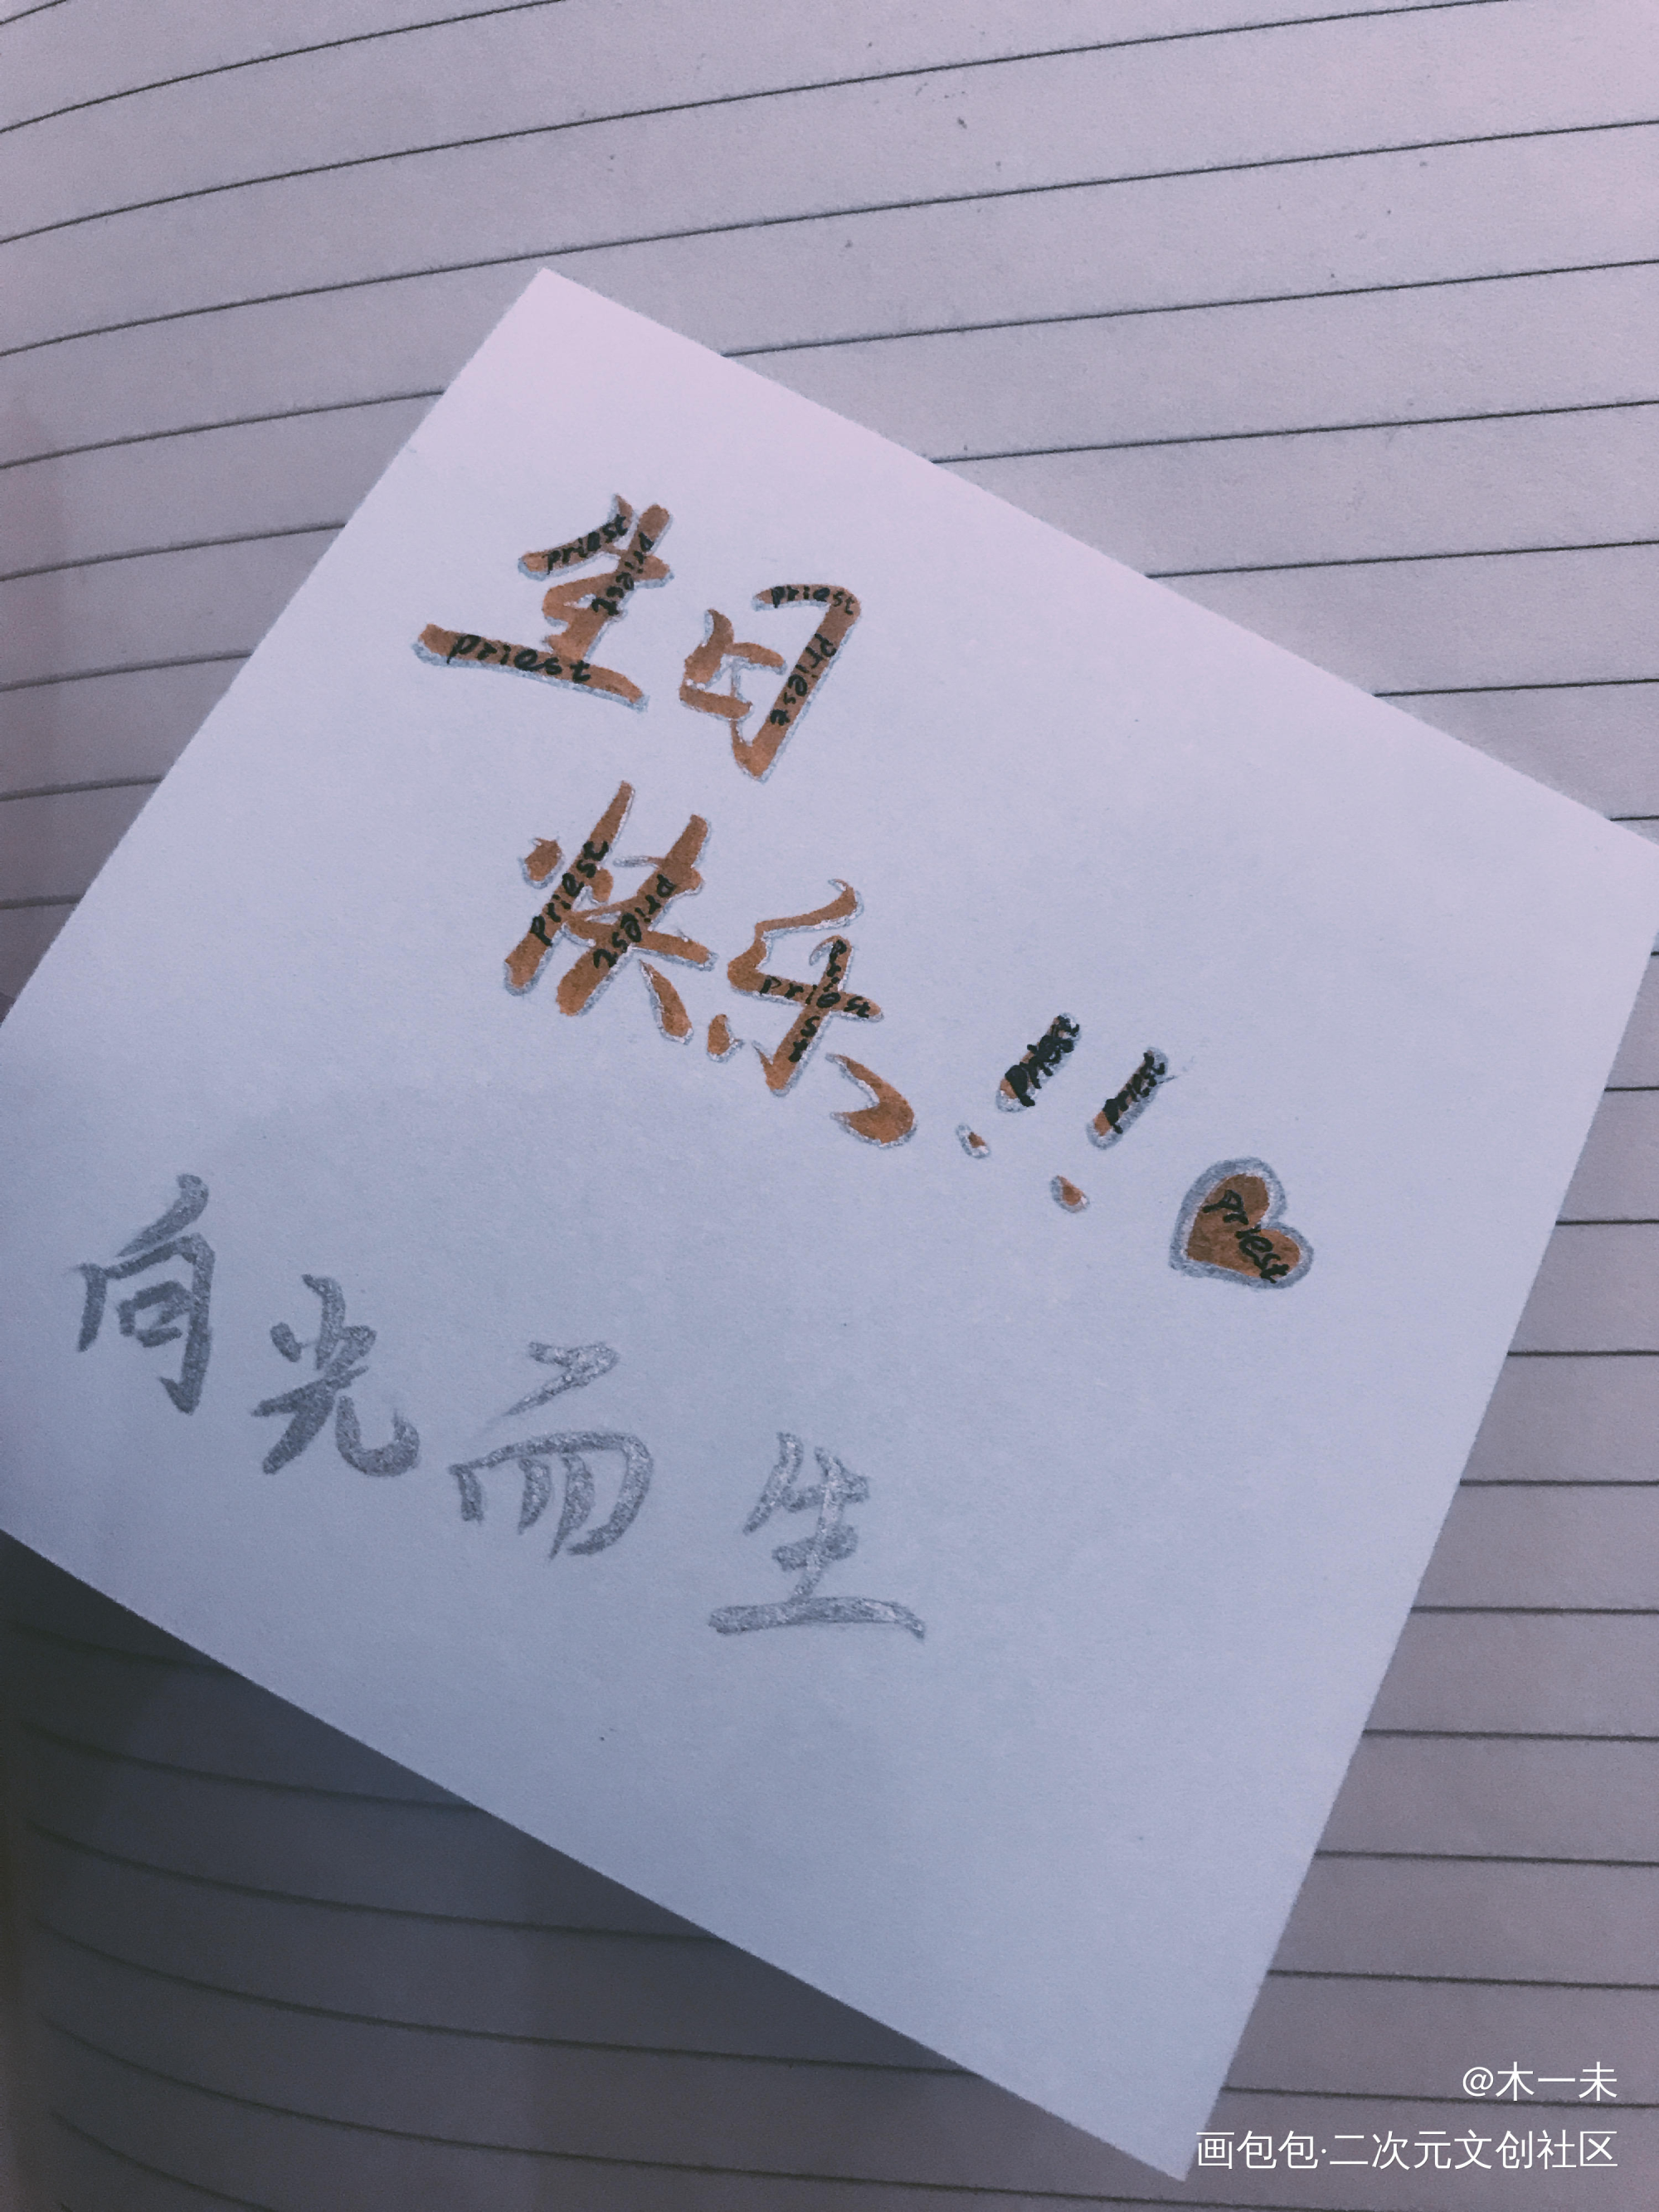 生日
priest priest priest priest priest
快乐!!
priest priest priest priest priest priest priest
向光而生
@木一未
画包包·二次元文创社区